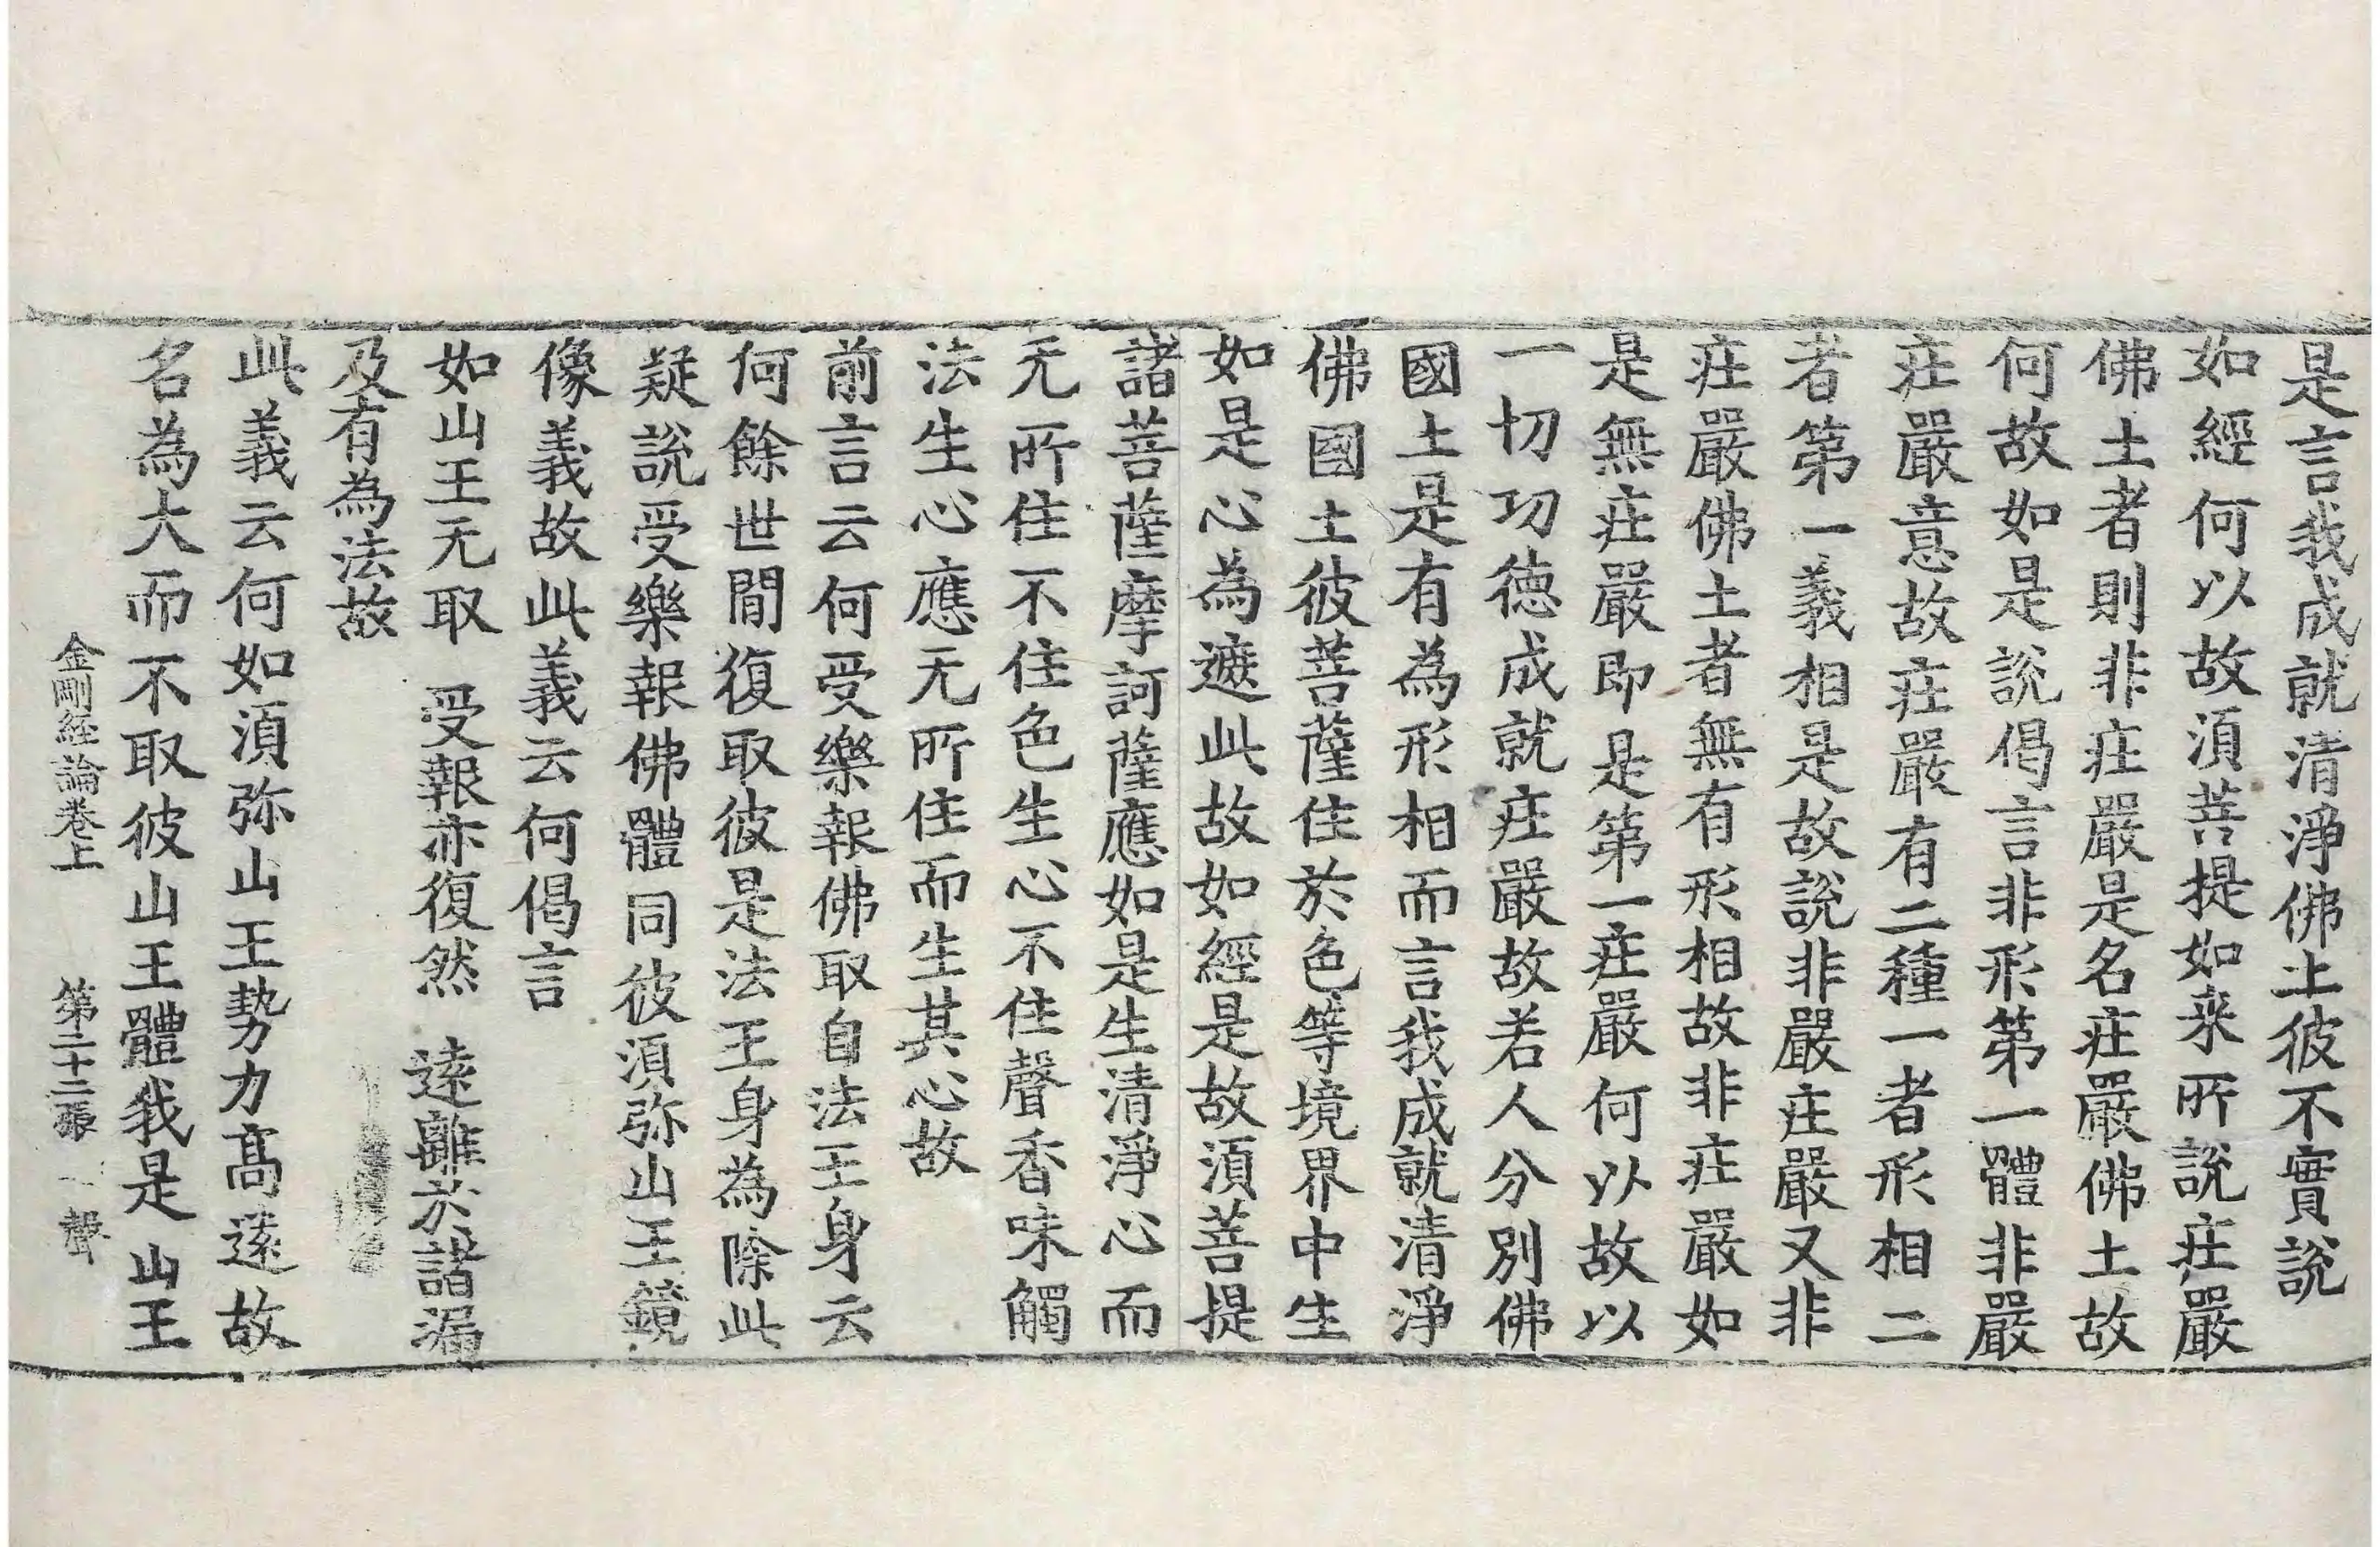 是言我成就清淨佛土彼不實說
如經何以故須菩提如来所說庄嚴
佛土者則非庄嚴是名庄嚴佛土故
何故如是說偈言非形第一體非嚴
庄嚴意故庄嚴有二種一者形相二
者第一義相是故說非嚴庄嚴又非
庄嚴佛土者無有形相故非庄嚴如
是無庄嚴即是第一庄嚴何以故以
一切功德成就庄嚴故若人分別佛
國土是有為形相而言我成就清淨
佛國土彼菩薩住於色等境界中生
如是心為遮此故如經是故須菩提
諸菩薩摩訶薩應如是生清淨心而
无所住不住色生心不住聲香味觸
法生心應无所住而生其心故
前言云何受樂報佛取自法王身云
何餘世間復取彼是法王身為除此
疑說受樂報佛體同彼須弥山王鏡
像義故此義云何偈言
如山王无取 受報亦復然 遠離於諸漏
及有為法故
此義云何如須弥山王勢力高遠故
名為大而不取彼山王體我是山王
金剛經論卷上 第二十二張 聲